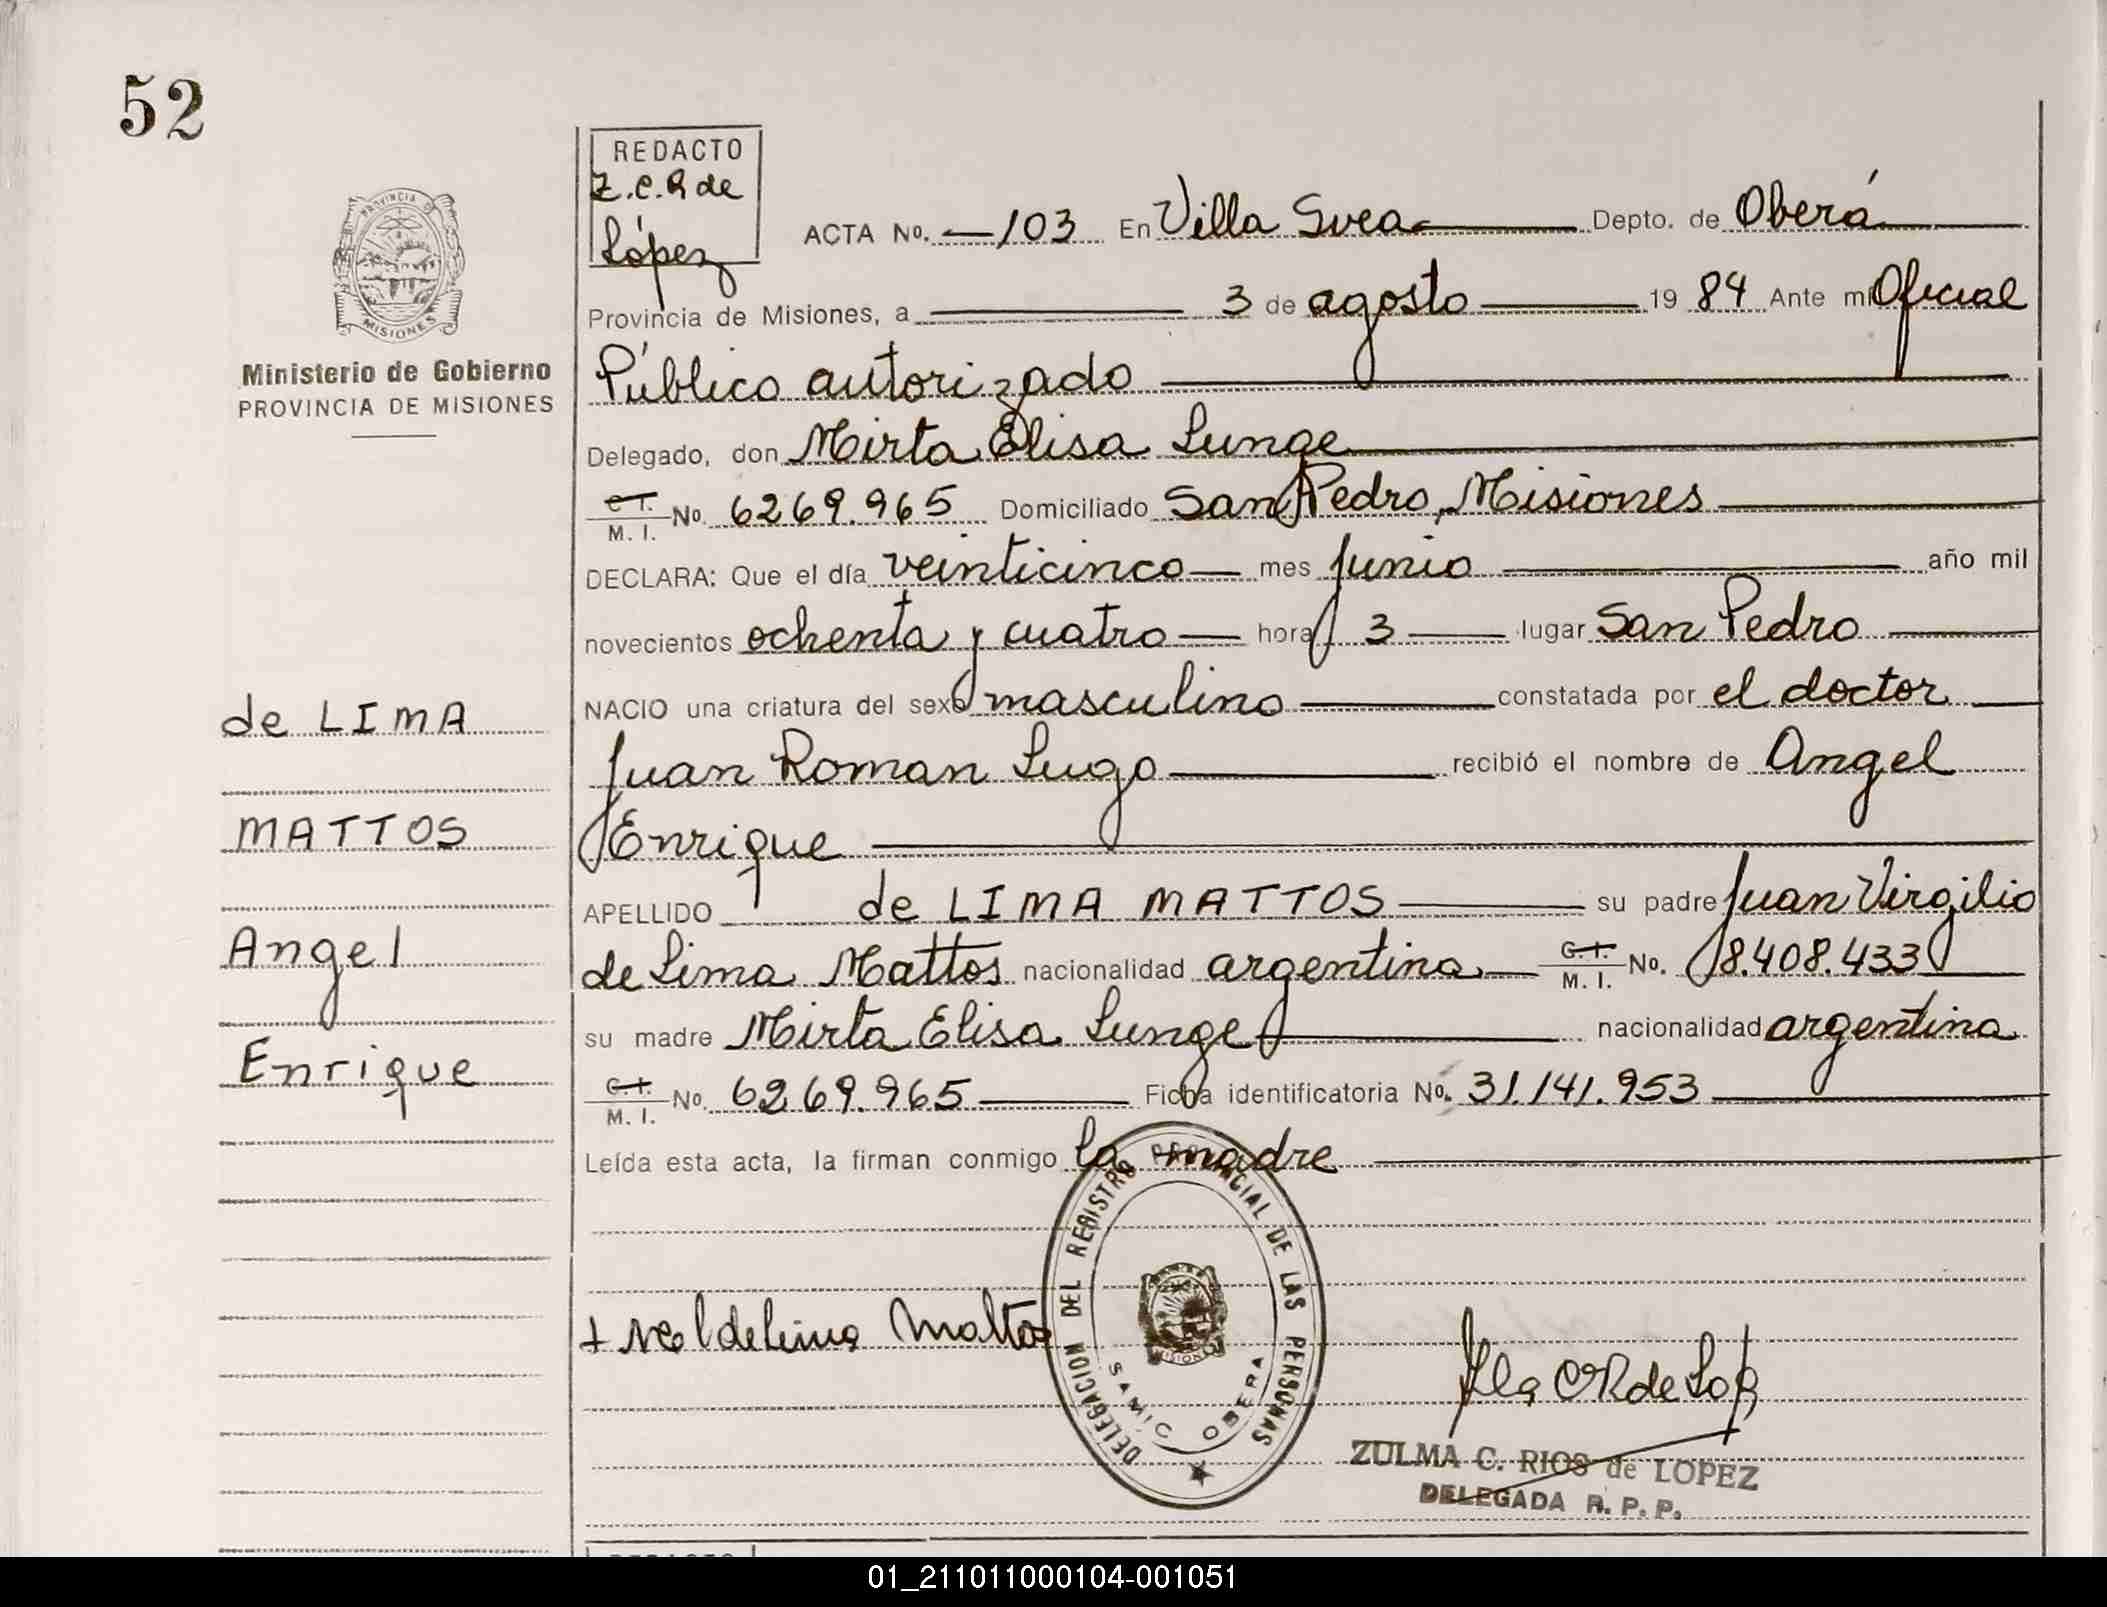 52
REDACTO
Z.C.R de
López
ACTA No. 103 En Villa Svea Depto. de Oberá
Provincia de Misiones, a 3 de agosto 1984 Ante mi Oficial
Público autorizado
Delegado, don Mirta Elisa Lunge
C.I. M. I. No. 6269.965 Domiciliado San Pedro, Misiones
DECLARA: Que el día veinticinco mes Junio año mil
novecientos ochenta y cuatro hora 3 lugar San Pedro
NACIO una criatura del sexo masculino constatada por el doctor
Juan Roman Lugo recibió el nombre de Angel
Enrique
APELLIDO de LIMA MATTOS su padre Juan Virgilio
de Lima Mattos nacionalidad argentina C.I. M. I. No. 8.408.433
su madre Mirta Elisa Lunge nacionalidad argentina
C.I. M. I. No. 6269.965 Ficha identificatoria No. 31.141.953
Leída esta acta, la firman conmigo la madre
PROVINCIA DE
MISIONES
Ministerio de Gobierno
PROVINCIA DE MISIONES
de LIMA
MATTOS
Angel
Enrique
de Lima Mattos
DELEGACION DEL REGISTRO PROVINCIAL DE LAS PERSONAS
MISIONES
SAMIC OBERA
ZULMA C. RIOS de LOPEZ
DELEGADA R. P. P.
01_211011000104-001051